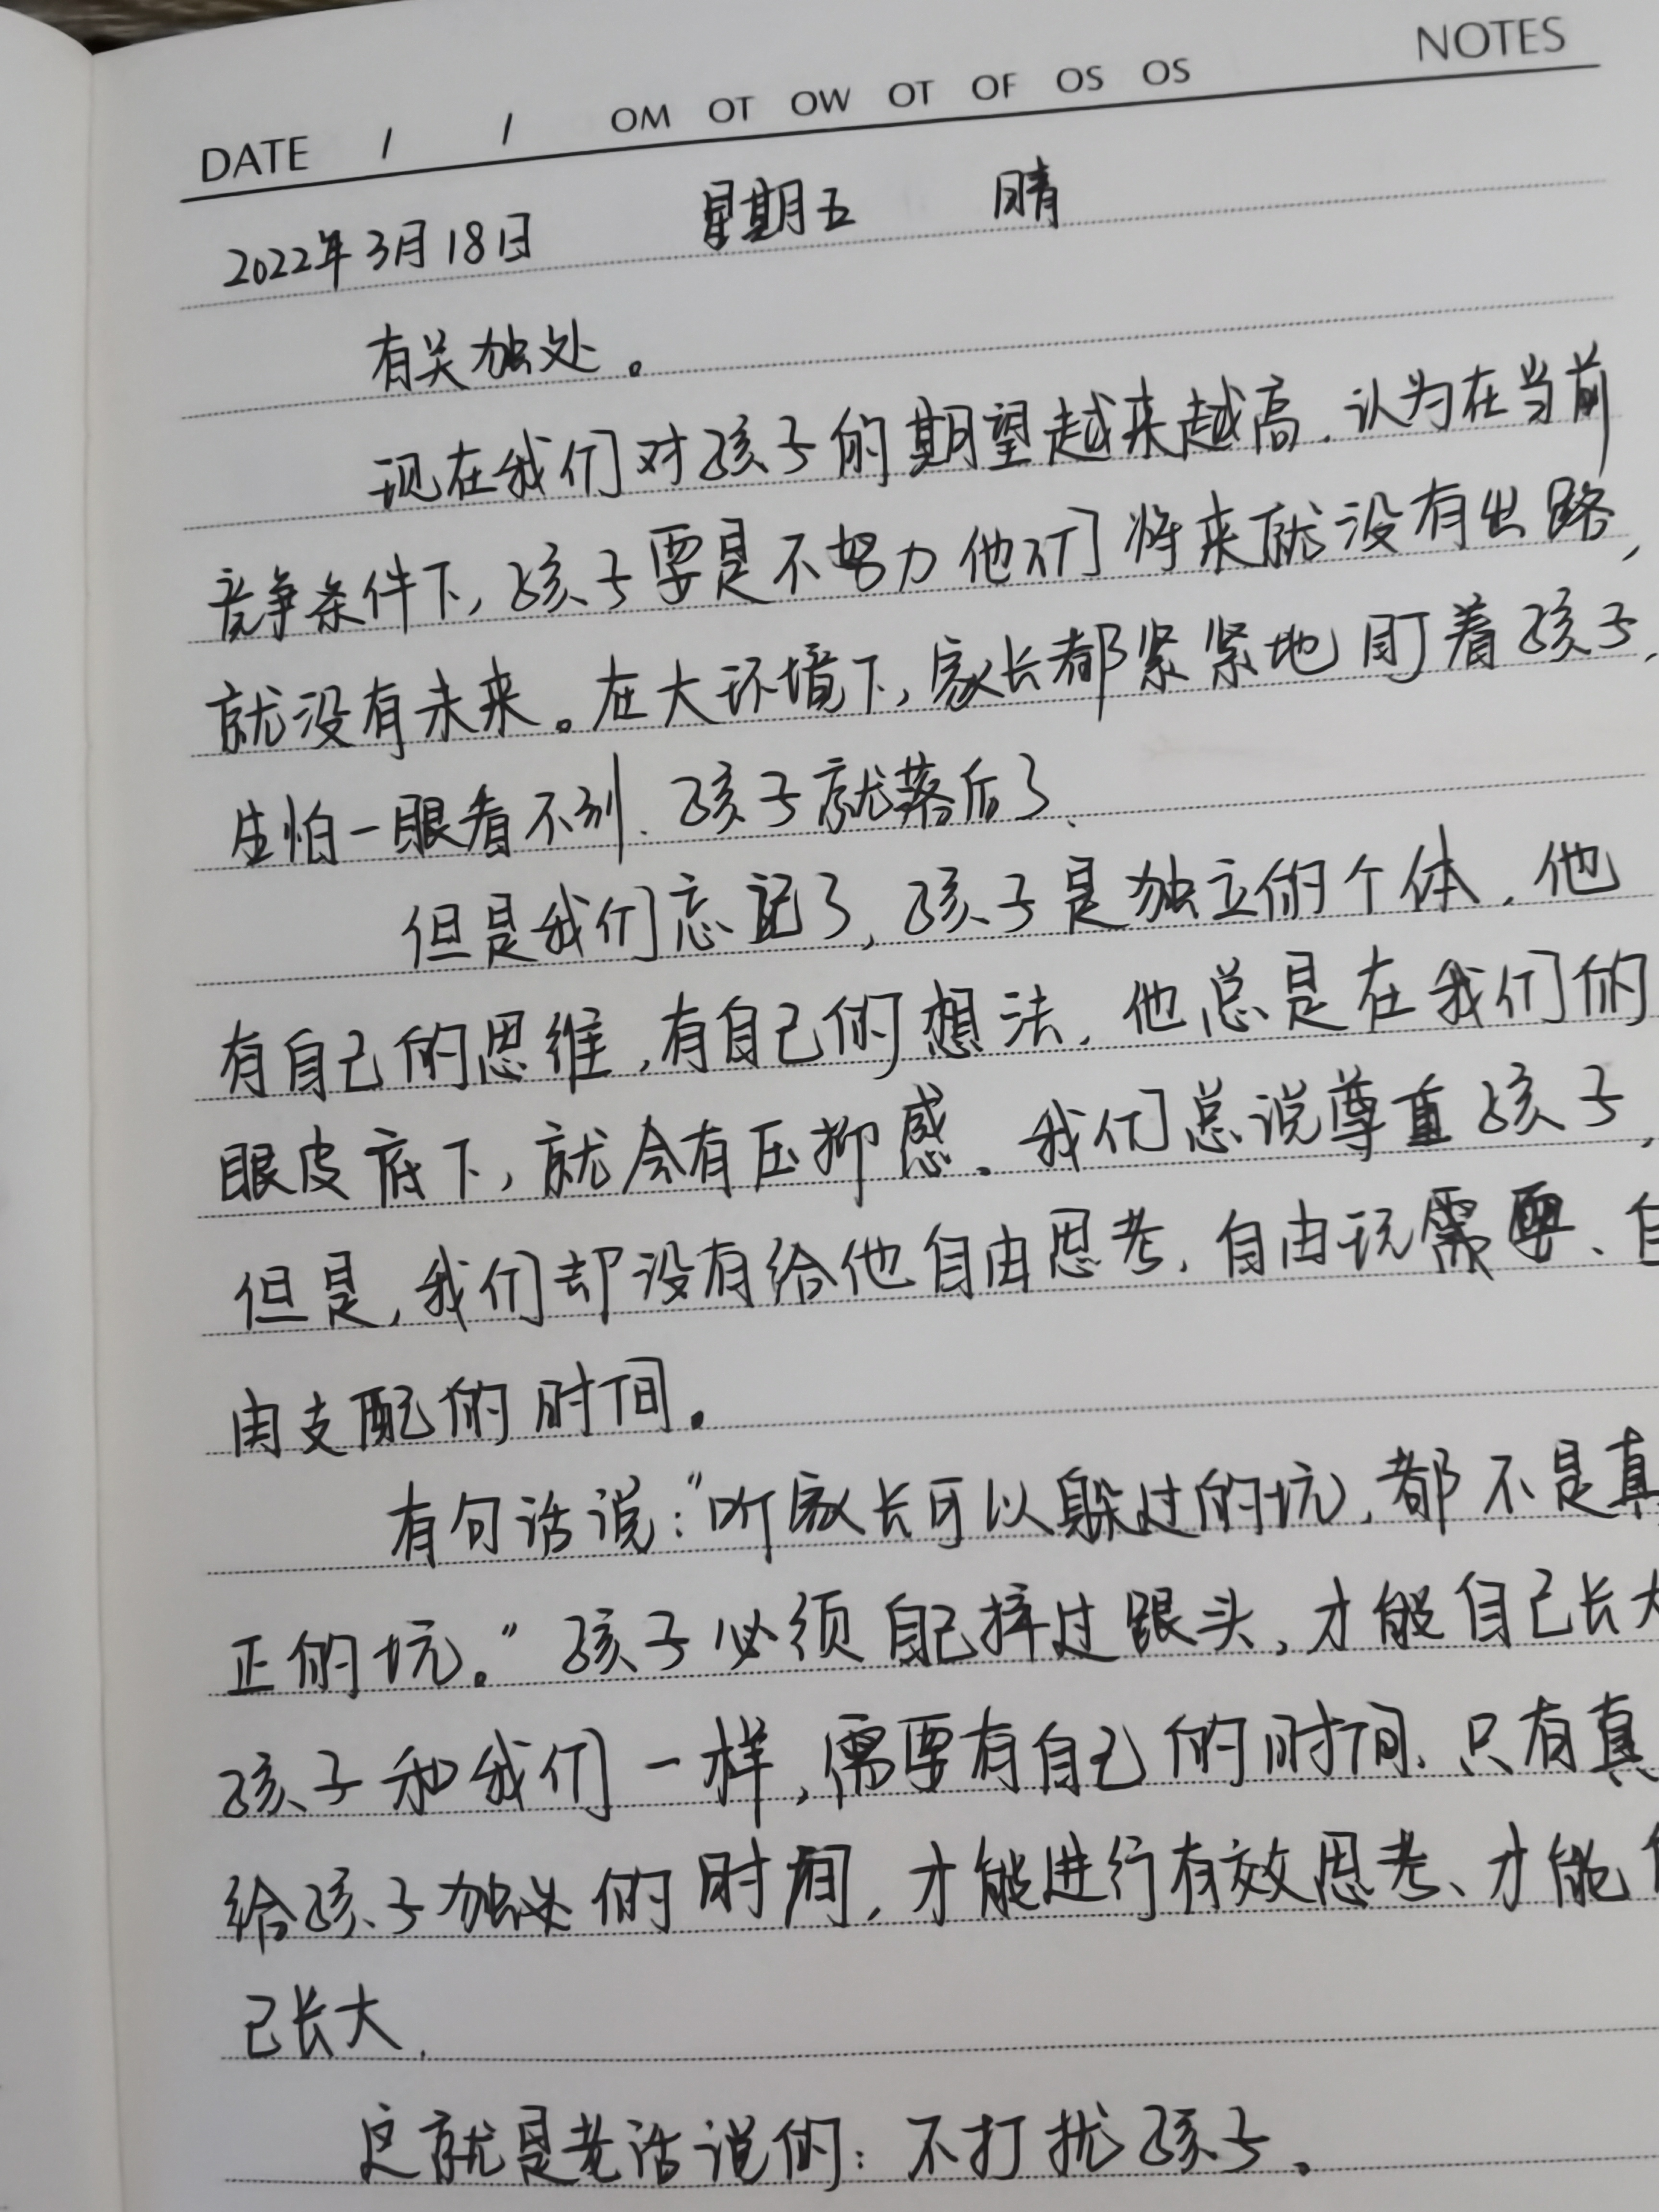 NOTES
DATE / / OM OT OW OT OF OS OS
2022年3月18日 星期五 晴
有关独处。
现在我们对孩子的期望越来越高，认为在当前
竞争条件下，孩子要是不努力他们将来就没有出路，
就没有未来。在大环境下，家长都紧紧地盯着孩子，
生怕一眼看不到，孩子就落后了。
但是我们忘记了，孩子是独立的个体，他
有自己的思维，有自己的想法，他总是在我们的
眼皮底下，就会有压抑感。我们总说尊重孩子，
但是，我们却没有给他自由思考、自由玩需要、自
由支配的时间。
有句话说：“听家长可以躲过的坑，都不是真
正的坑。”孩子必须自己摔过跟头，才能自己长大
孩子和我们一样，需要有自己的时间，只有真
给孩子独处的时间，才能进行有效思考、才能
己长大。
这就是老话说的：不打扰孩子。